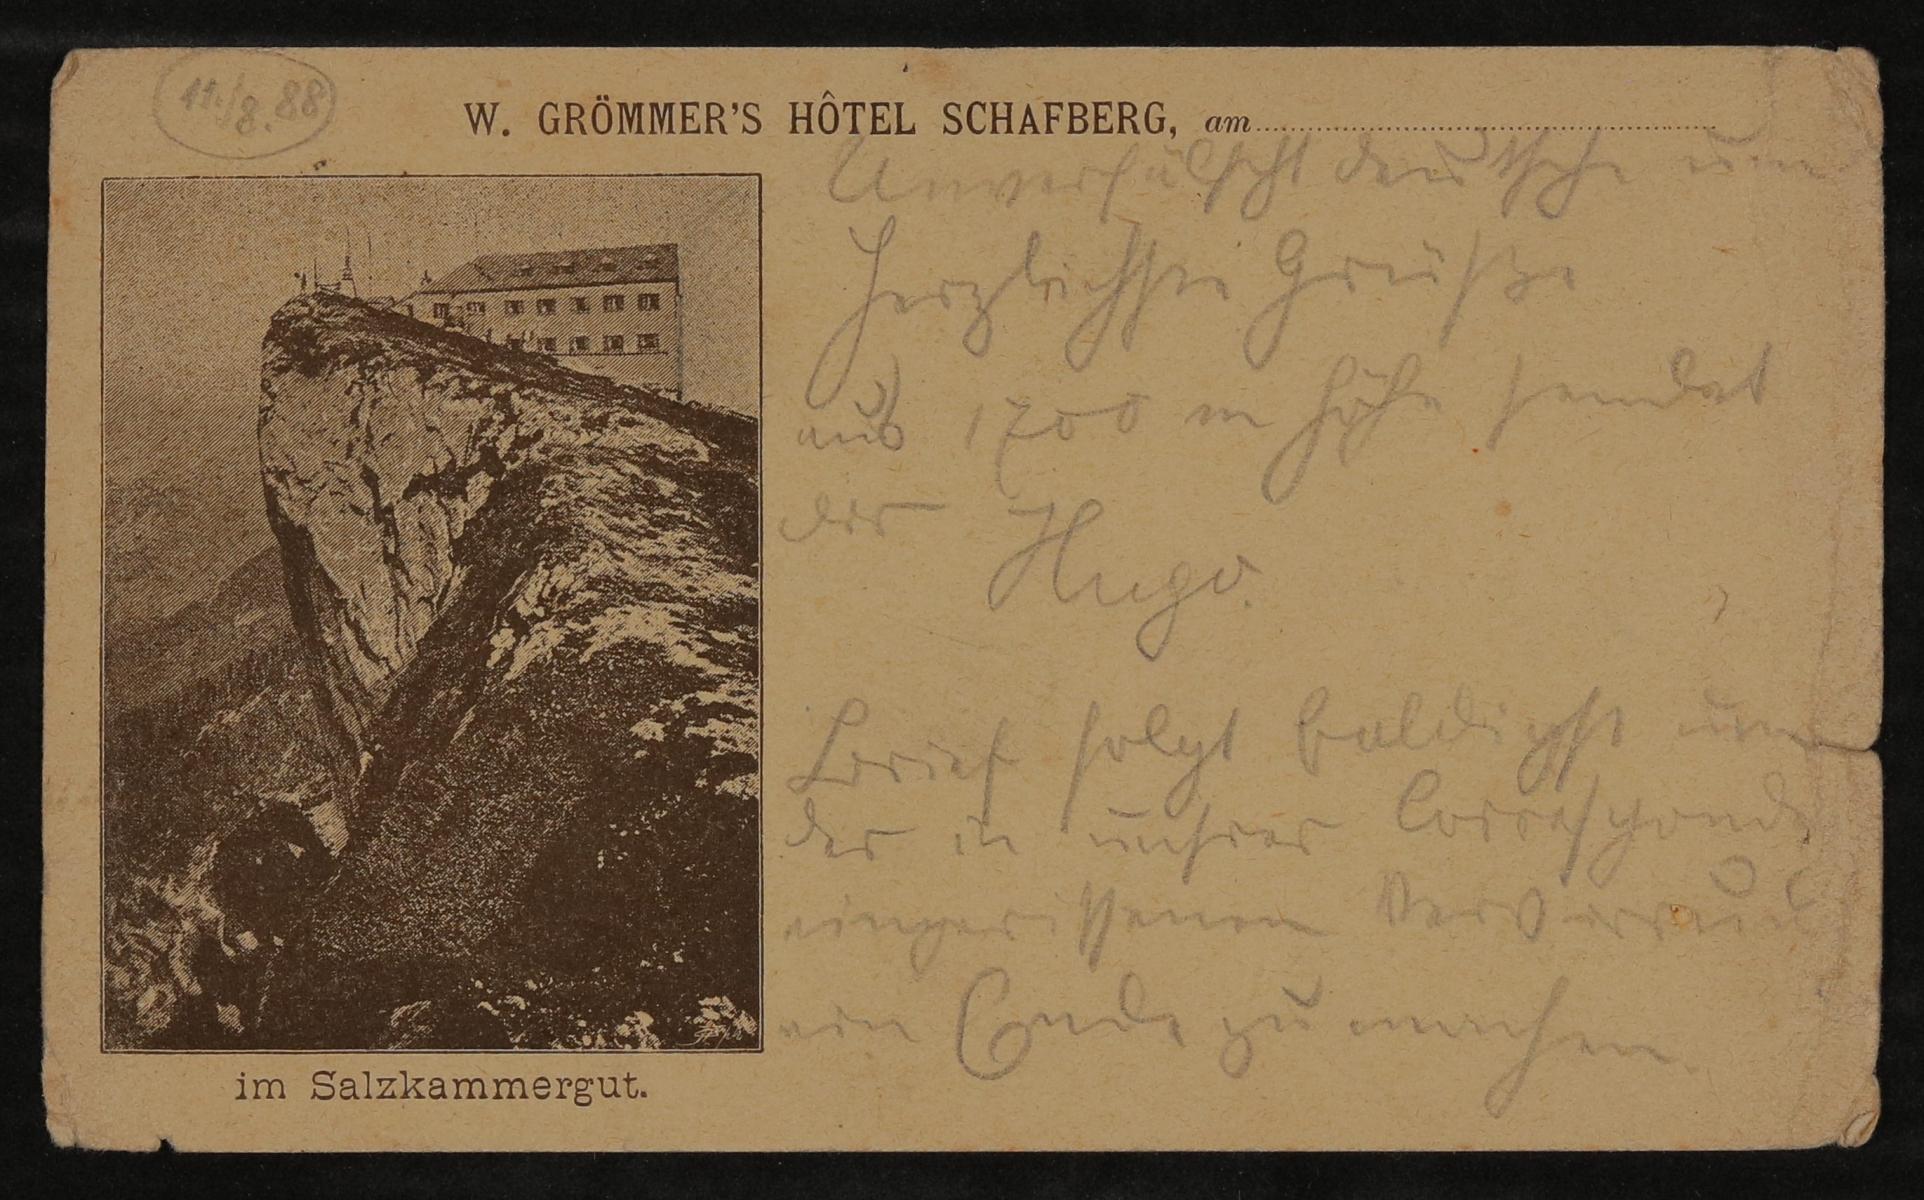 11./8. 88
W. GRÖMMER'S HÔTEL SCHAFBERG, am
Unverfälscht deutsche und
herzlichste Grüße
aus 1700 m Höhe sendet
der
Hugo.
Brief folgt baldigst um
der in unsrer Corresponde
eingerissenen Verwirrung
ein Ende zu machen
im Salzkammergut.